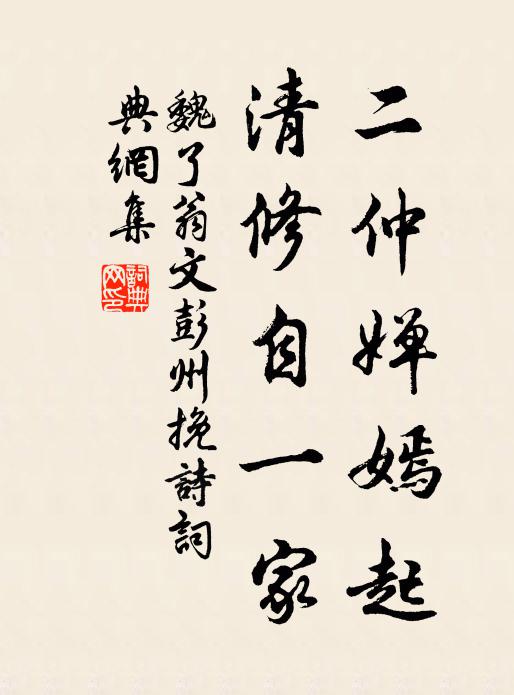 二仲嬋嫣起
清修自一家
魏了翁文彭州挽詩詞
典網集
詞典網印